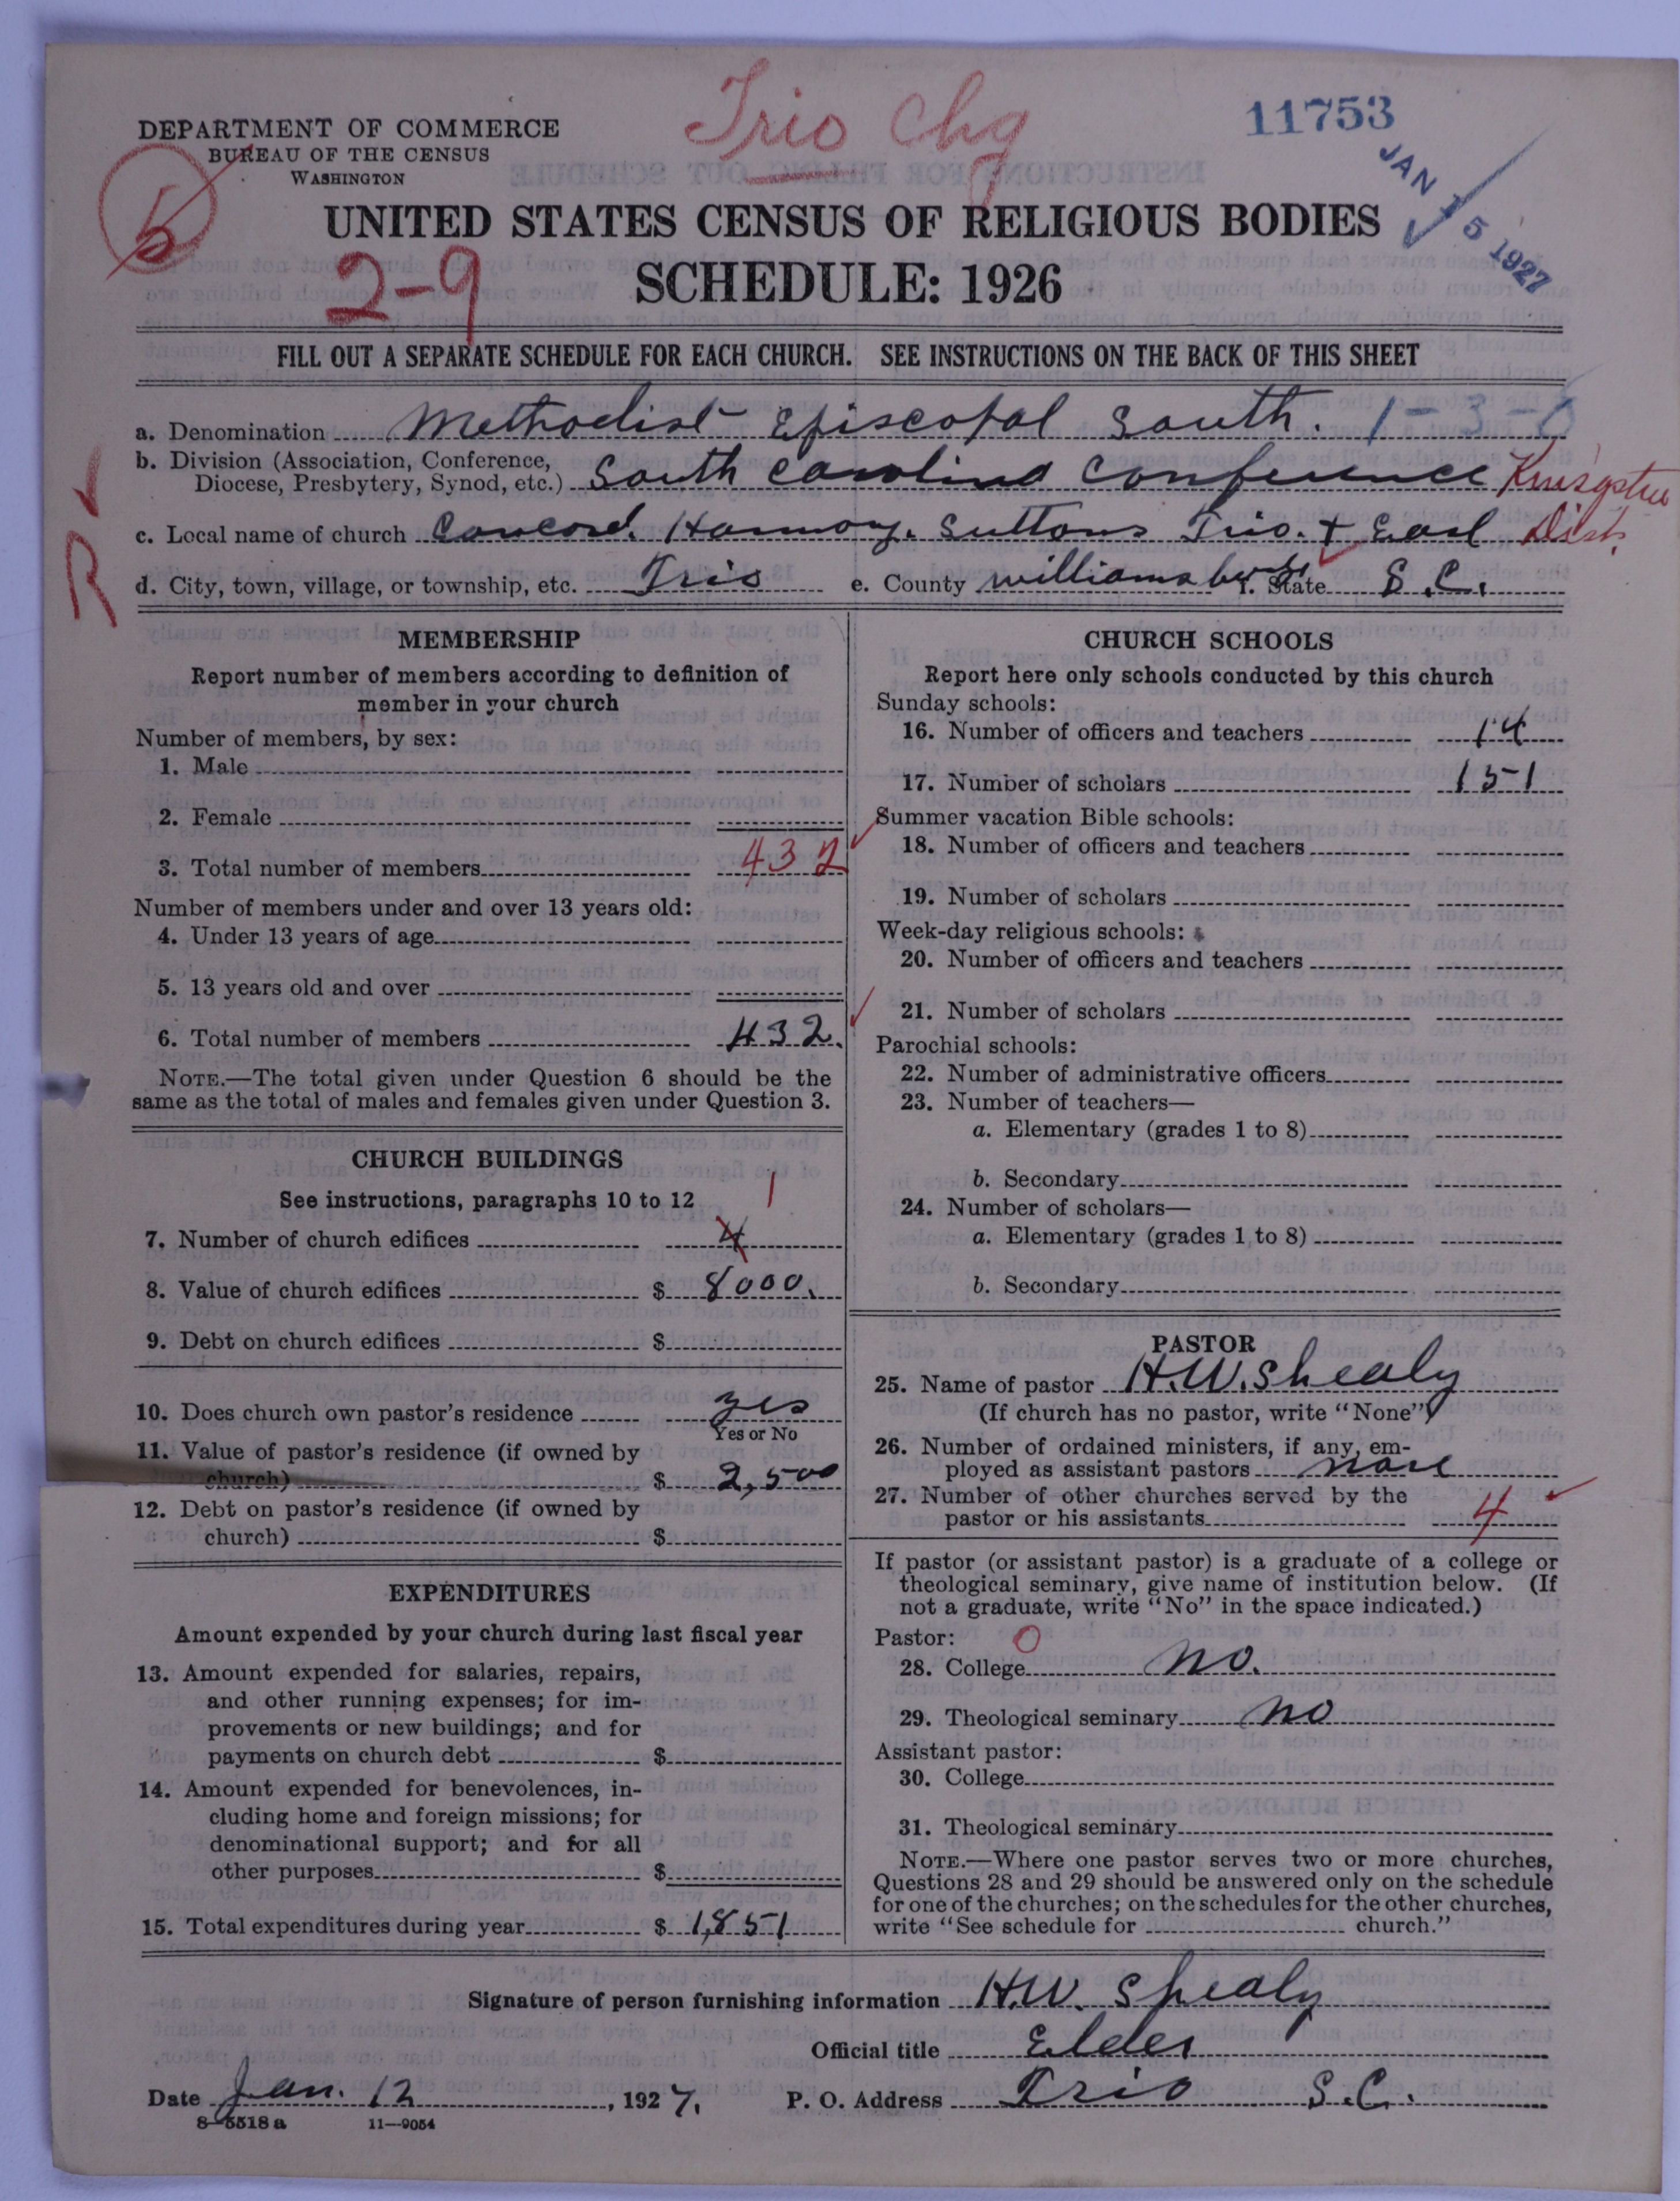 Trio Chg
11753
JAN 15 1927
DEPARTMENT OF COMMERCE
BUREAU OF THE CENSUS
WASHINGTON
UNITED STATES CENSUS OF RELIGIOUS BODIES
2-9
SCHEDULE: 1926
FILL OUT A SEPARATE SCHEDULE FOR EACH CHURCH. SEE INSTRUCTIONS ON THE BACK OF THIS SHEET
a. Denomination Methodist Episcopal South. 1-3-0
b. Division (Association, Conference,
Diocese, Presbytery, Synod, etc.) South Carolina Conference
Dist.
c. Local name of church Concord. Harmony. Suttons Trio. + Earl
d. City, town, village, or township, etc. Trio e. County Williamsburg f. State S.C.
R
MEMBERSHIP
Report number of members according to definition of
member in your church
Number of members, by sex:
1. Male
2. Female
3. Total number of members 432
Number of members under and over 13 years old:
4. Under 13 years of age
5. 13 years old and over
6. Total number of members 432.
NOTE.—The total given under Question 6 should be the
same as the total of males and females given under Question 3.
CHURCH BUILDINGS
See instructions, paragraphs 10 to 12 1
7. Number of church edifices 4
8. Value of church edifices $ 8000.
9. Debt on church edifices $
10. Does church own pastor's residence yes
Yes or No
11. Value of pastor's residence (if owned by
church) $ 2,500
12. Debt on pastor's residence (if owned by
church) $
EXPENDITURES
Amount expended by your church during last fiscal year
13. Amount expended for salaries, repairs,
and other running expenses; for im-
provements or new buildings; and for
payments on church debt $
14. Amount expended for benevolences, in-
cluding home and foreign missions; for
denominational support; and for all
other purposes $
15. Total expenditures during year $ 1,851
CHURCH SCHOOLS
Report here only schools conducted by this church
Sunday schools:
16. Number of officers and teachers 14
17. Number of scholars 151
Summer vacation Bible schools:
18. Number of officers and teachers
19. Number of scholars
Week-day religious schools:
20. Number of officers and teachers
21. Number of scholars
Parochial schools:
22. Number of administrative officers
23. Number of teachers—
a. Elementary (grades 1 to 8)
b. Secondary
24. Number of scholars—
a. Elementary (grades 1 to 8)
b. Secondary
PASTOR
25. Name of pastor H.W. Shealy
(If church has no pastor, write "None")
26. Number of ordained ministers, if any, em-
ployed as assistant pastors none
27. Number of other churches served by the
pastor or his assistants 4
If pastor (or assistant pastor) is a graduate of a college or
theological seminary, give name of institution below. (If
not a graduate, write "No" in the space indicated.)
Pastor: 0
28. College no.
29. Theological seminary no
Assistant pastor:
30. College
31. Theological seminary
NOTE.—Where one pastor serves two or more churches,
Questions 28 and 29 should be answered only on the schedule
for one of the churches; on the schedules for the other churches,
write "See schedule for church."
Signature of person furnishing information H.W. Shealy
Official title Elder
Date Jan. 12, 1927. P. O. Address Trio S.C.
8-5518 a 11-9054